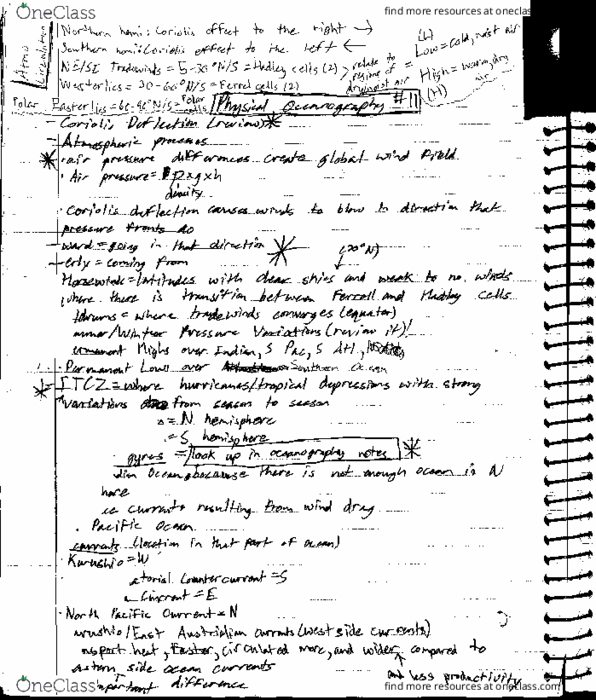 OneClass
find more resources at oneclass.
Northern hemi: Coriolis effect to the right →
Southern hemi: Coriolis effect to the left ←
NE/SE Tradewinds = 5-30°N/S = Hadley cells (2)
Westerlies = 30-60°N/S = Ferrel cells (2)
Polar Easterlies = 60-90°N/S = Polar cells
relate to
regime of
(L)
Low = cold, moist air
High = warm, dry
air
(H)
Atmo
Circulation
Physical Oceanography #11
- Coriolis Deflection (review)*
- Atmospheric processes
* · air pressure differences create global wind field
· Air pressure = p x g x h
density
· Coriolis deflection causes winds to blow in direction that
pressure fronts do
- ward = going in that direction
- erly = coming from
(30°N)
Horse = latitudes with clear skies and weak to no winds
where there is transition between Ferrell and Hadley cells
= where tradewinds converges (equator)
mmer/Winter Pressure Variations (review it)!
Highs over Indian, S Pac, S Atl,
· Permanant Lows over Southern Ocean
* - ITCZ = where hurricanes/tropical depressions with strong
variations from season to season
= N hemisphere
= S hemisphere
· gyres = look up in oceanography notes *
dian Ocean because there is not enough ocean in N
here
ce currents resulting from wind drag
· Pacific Ocean
currents (location in that part of ocean)
· Kurushio = W
atorial Countercurrent = S
Current = E
· North Pacific Current = N
urushio/East Australian currents (west side currents)
nsport heat, faster, circulated more, and wider compared to
astern side ocean currents
and less productivity
important difference
OneClass
find more resources at oneclass.